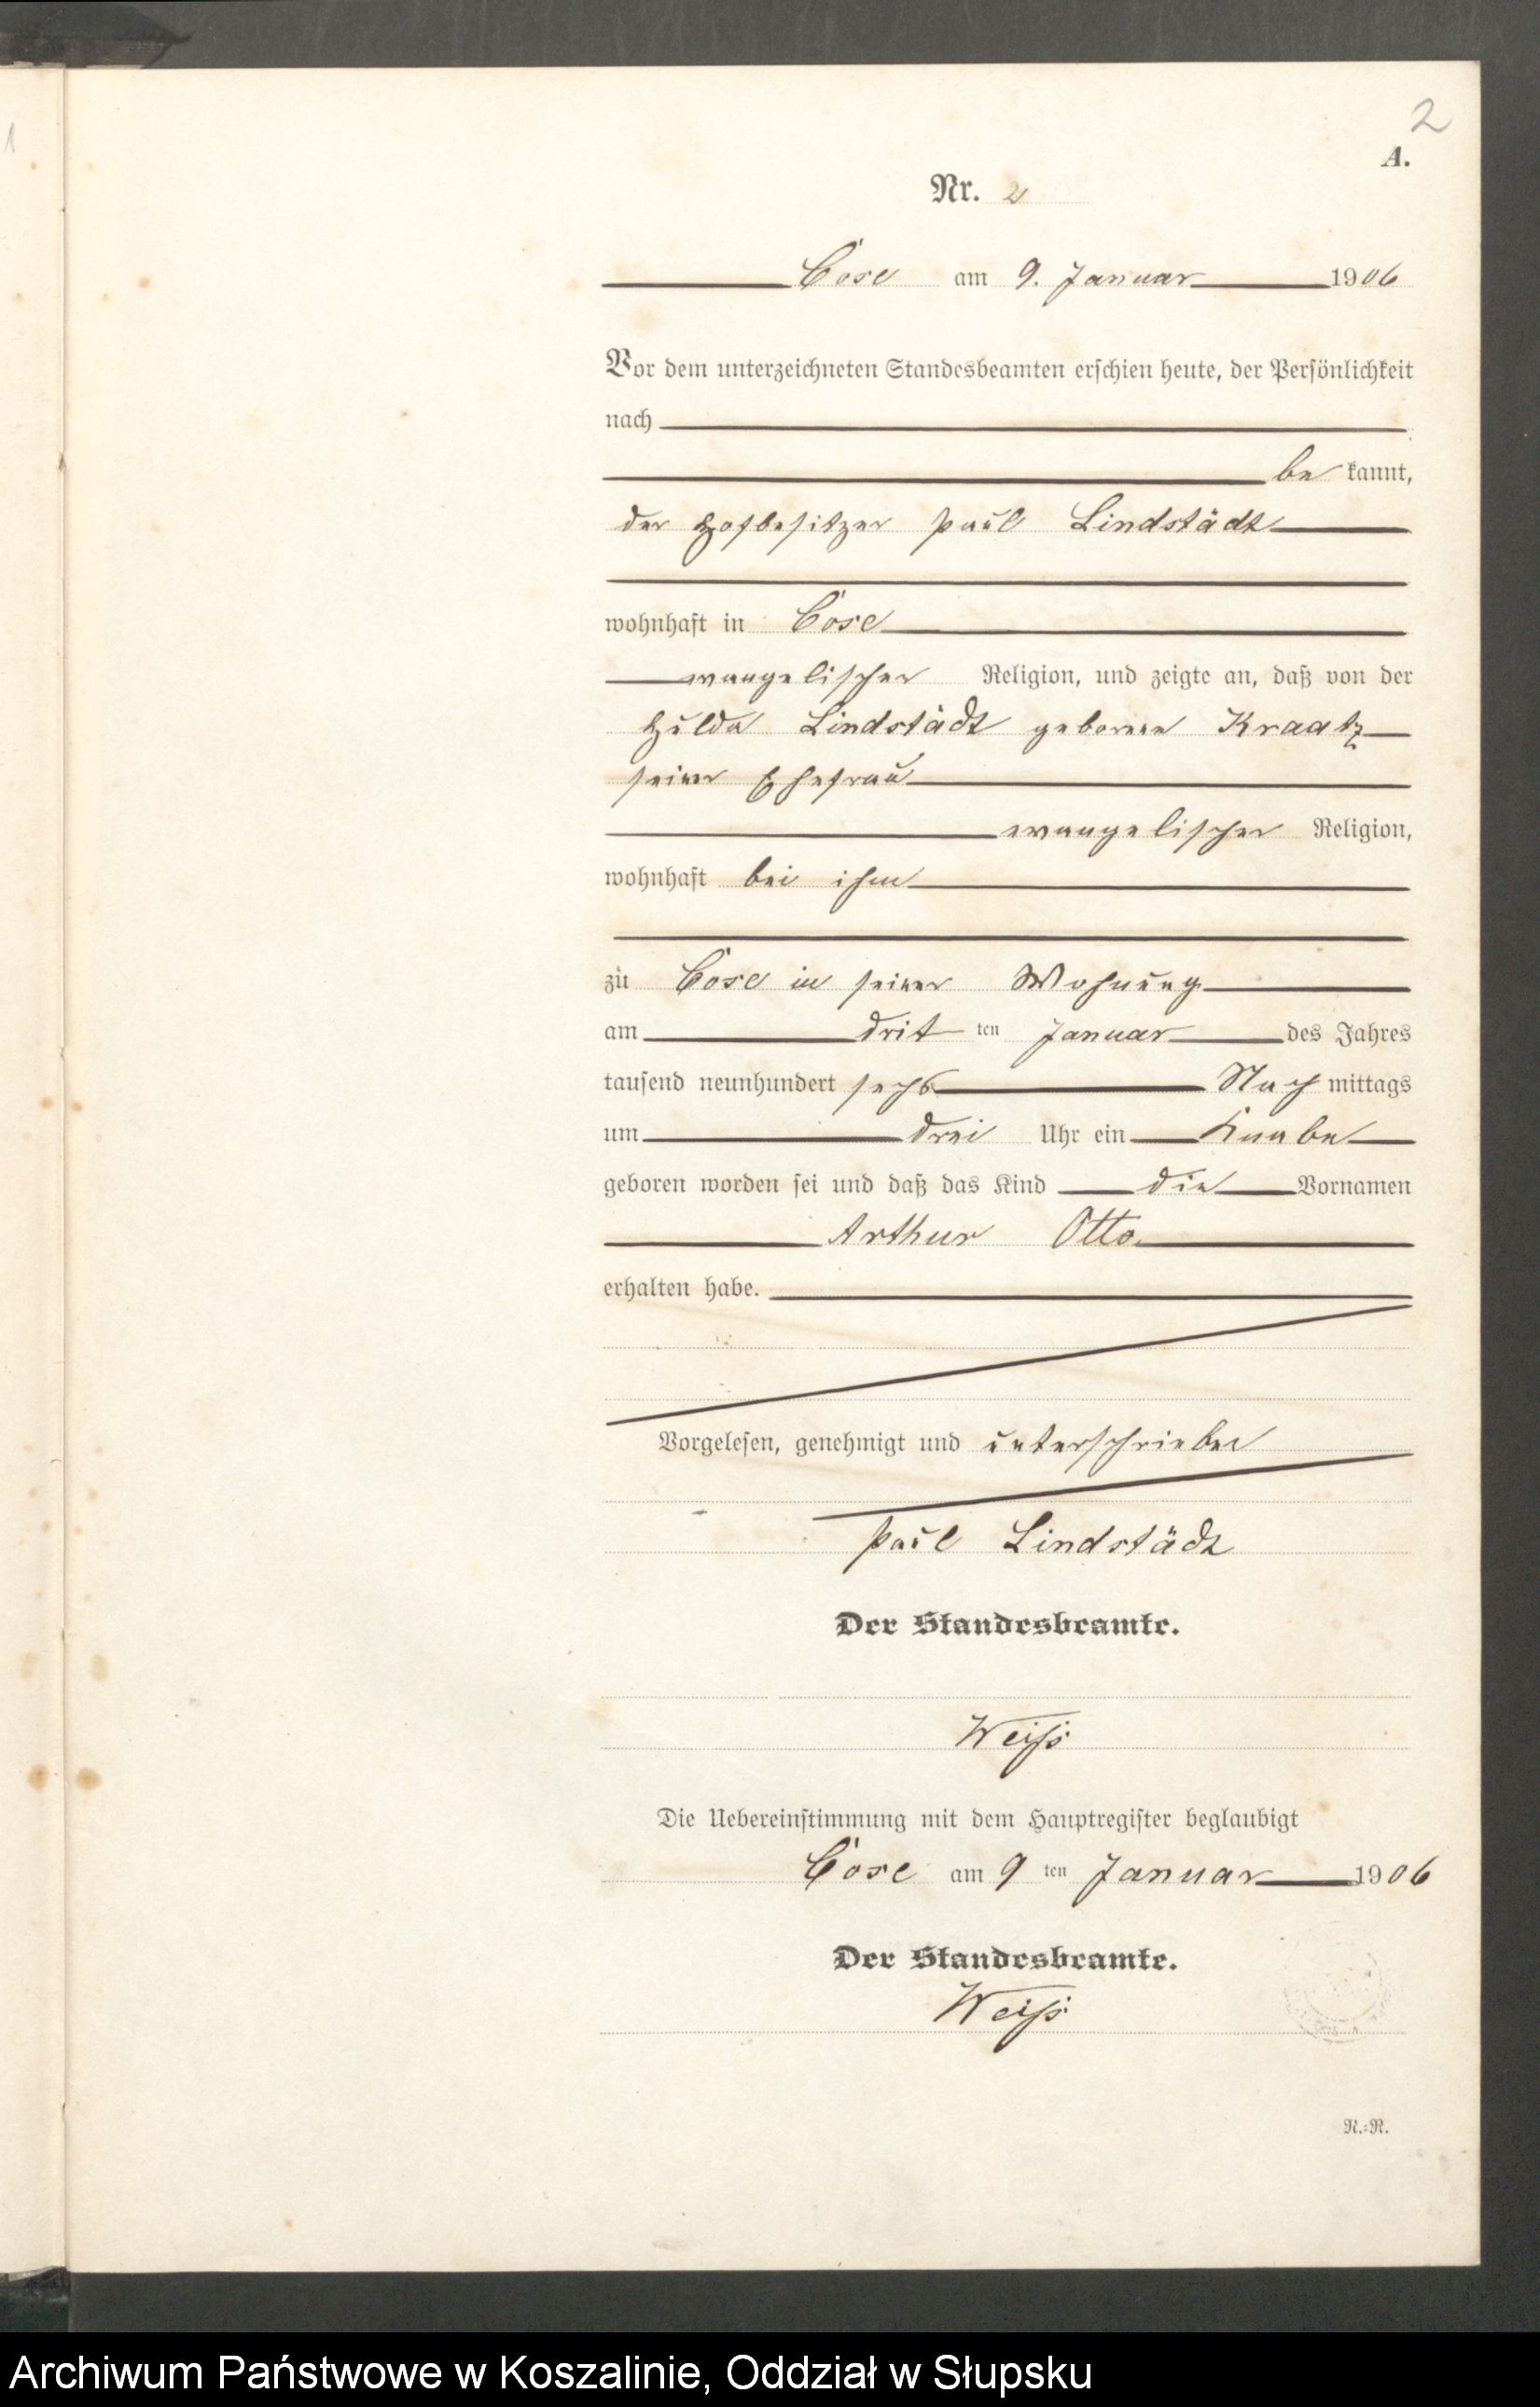 1
2
A.
Nr. 2
Cose am 9. Januar 1906
Vor dem unterzeichneten Standesbeamten erschien heute, der Persönlichkeit
nach
be kannt,
der Hofbesitzer Paul Lindstädt
wohnhaft in Cose
evangelischer Religion, und zeigte an, daß von der
Hulda Lindstädt geborene Kraatz
seiner Ehefrau
evangelischer Religion,
wohnhaft bei ihm
zu Cose in seiner Wohnung
am drit ten Januar des Jahres
tausend neunhundert sechs Nach mittags
um drei Uhr ein Knabe
geboren worden sei und daß das Kind die Vornamen
Arthur Otto
erhalten habe.
Vorgelesen, genehmigt und unterschrieben
Paul Lindstädt
Der Standesbeamte.
Weiß
Die Uebereinstimmung mit dem Hauptregister beglaubigt
Cose am 9 ten Januar 1906
Der Standesbeamte.
Weiß
R.-R.
Archiwum Państwowe w Koszalinie, Oddział w Słupsku